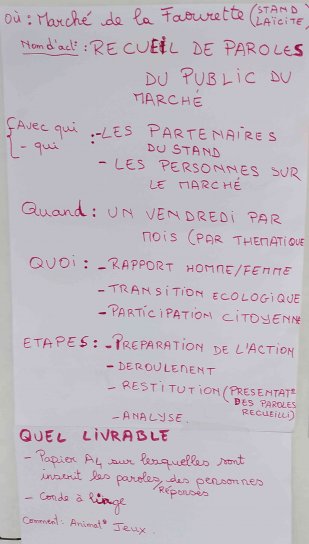 Où : Marché de la Faourette (STAND
LAÏCITE)
Nom d'act° : RECUEIL DE PAROLES
DU PUBLIC DU
MARCHÉ
Avec qui
- qui
:- LES PARTENAIRES
DU STAND
- LES PERSONNES SUR
LE MARCHÉ
Quand : UN VENDREDI PAR
MOIS (PAR THEMATIQUE
QUOI : - RAPPORT HOMME/FEMME
- TRANSITION ECOLOGIQUE
- PARTICIPATION CITOYENNE
ETAPES : - PREPARATION DE L'ACTION
- DEROULEMENT
- RESTITUTION (PRESENTAT°
DES PAROLES
RECUEILLI)
- ANALYSE
QUEL LIVRABLE
- Papier A4 sur lesquelles sont
inscrit les paroles, des personnes
Réponses
- Corde à linge
Comment : Animat° Jeux.